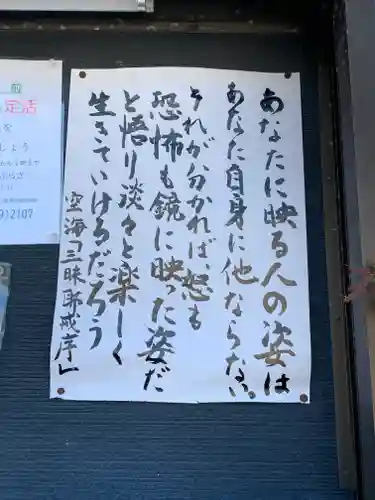 あなたに映る人の姿は
あなた自身に他ならない。
それが分かれば怒も
恐怖も鏡に映った姿だ
と悟り淡々と楽しく
生きていけるだろう
空海「三昧耶戒序」
定活
を
しょう
912107